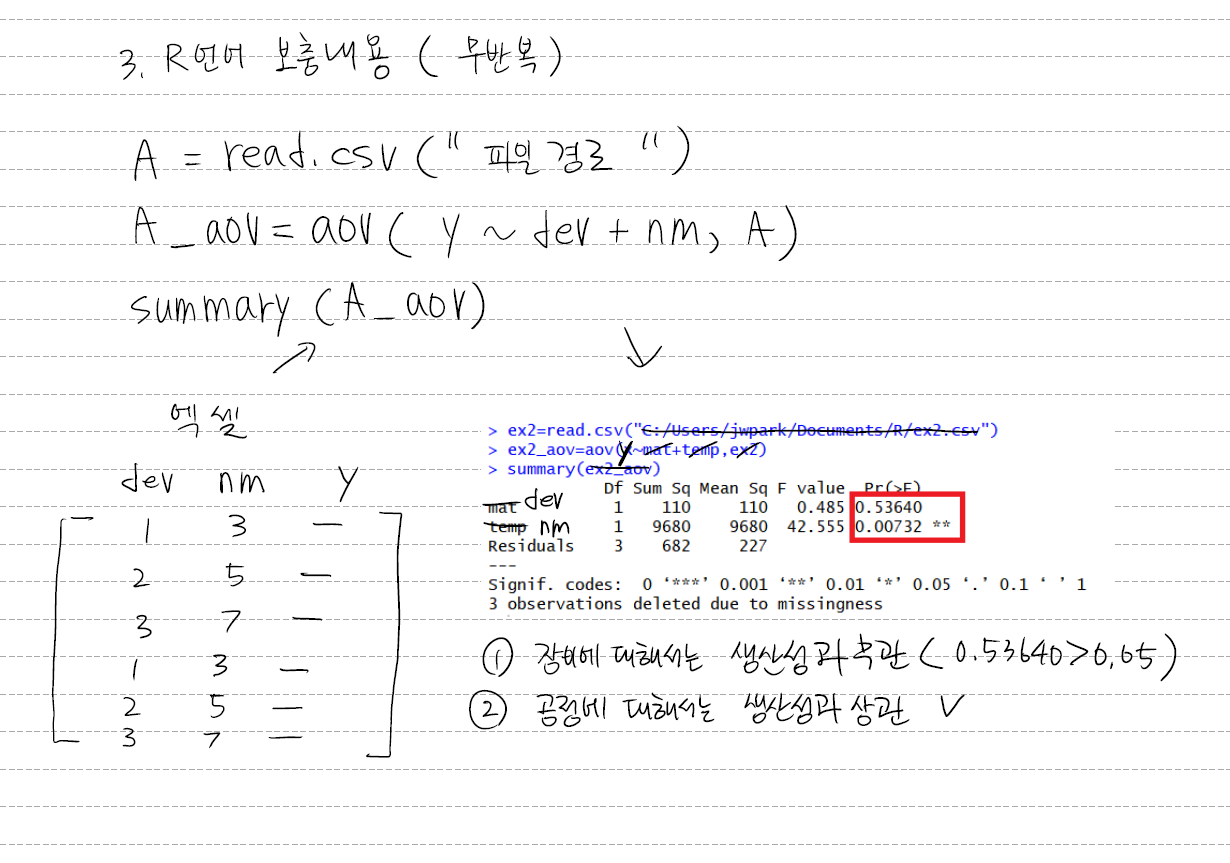 3. R언어 보충내용 ( 무반복 )
A = read.csv ( " 파일 경로 " )
A_aov = aov ( Y ~ dev + nm, A )
summary (A_aov)
엑셀
dev nm Y
1 3 —
2 5 —
3 7 —
1 3 —
2 5 —
3 7 —
> ex2=read.csv("C:/Users/jwpark/Documents/R/ex2.csv")
> ex2_aov=aov(Y~mat+temp,ex2)
> summary(ex2_aov)
Df Sum Sq Mean Sq F value Pr(>F)
mat dev 1 110 110 0.485 0.53640
temp nm 1 9680 9680 42.555 0.00732 **
Residuals 3 682 227
---
Signif. codes: 0 ‘***’ 0.001 ‘**’ 0.01 ‘*’ 0.05 ‘.’ 0.1 ‘ ’ 1
3 observations deleted due to missingness
① 장비에 대해서는 생산성과 무관 ( 0.53640 > 0.05 )
② 공정에 대해서는 생산성과 상관 V